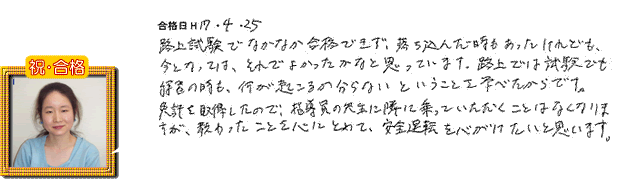 合格日H17・4・25
路上試験でなかなか合格できず、落ち込んだ時もあったけれども、
今となっては、それでよかったかなと思っています。路上では試験でも
探習の時も、何が起こるか分らないということを学べたからです。
免許を取得したので、指導員の先生に隣に乗っていただくことはなくなりま
すが、教わったことを心にとめて、安全運転を心がけたいと思います。
祝・合格